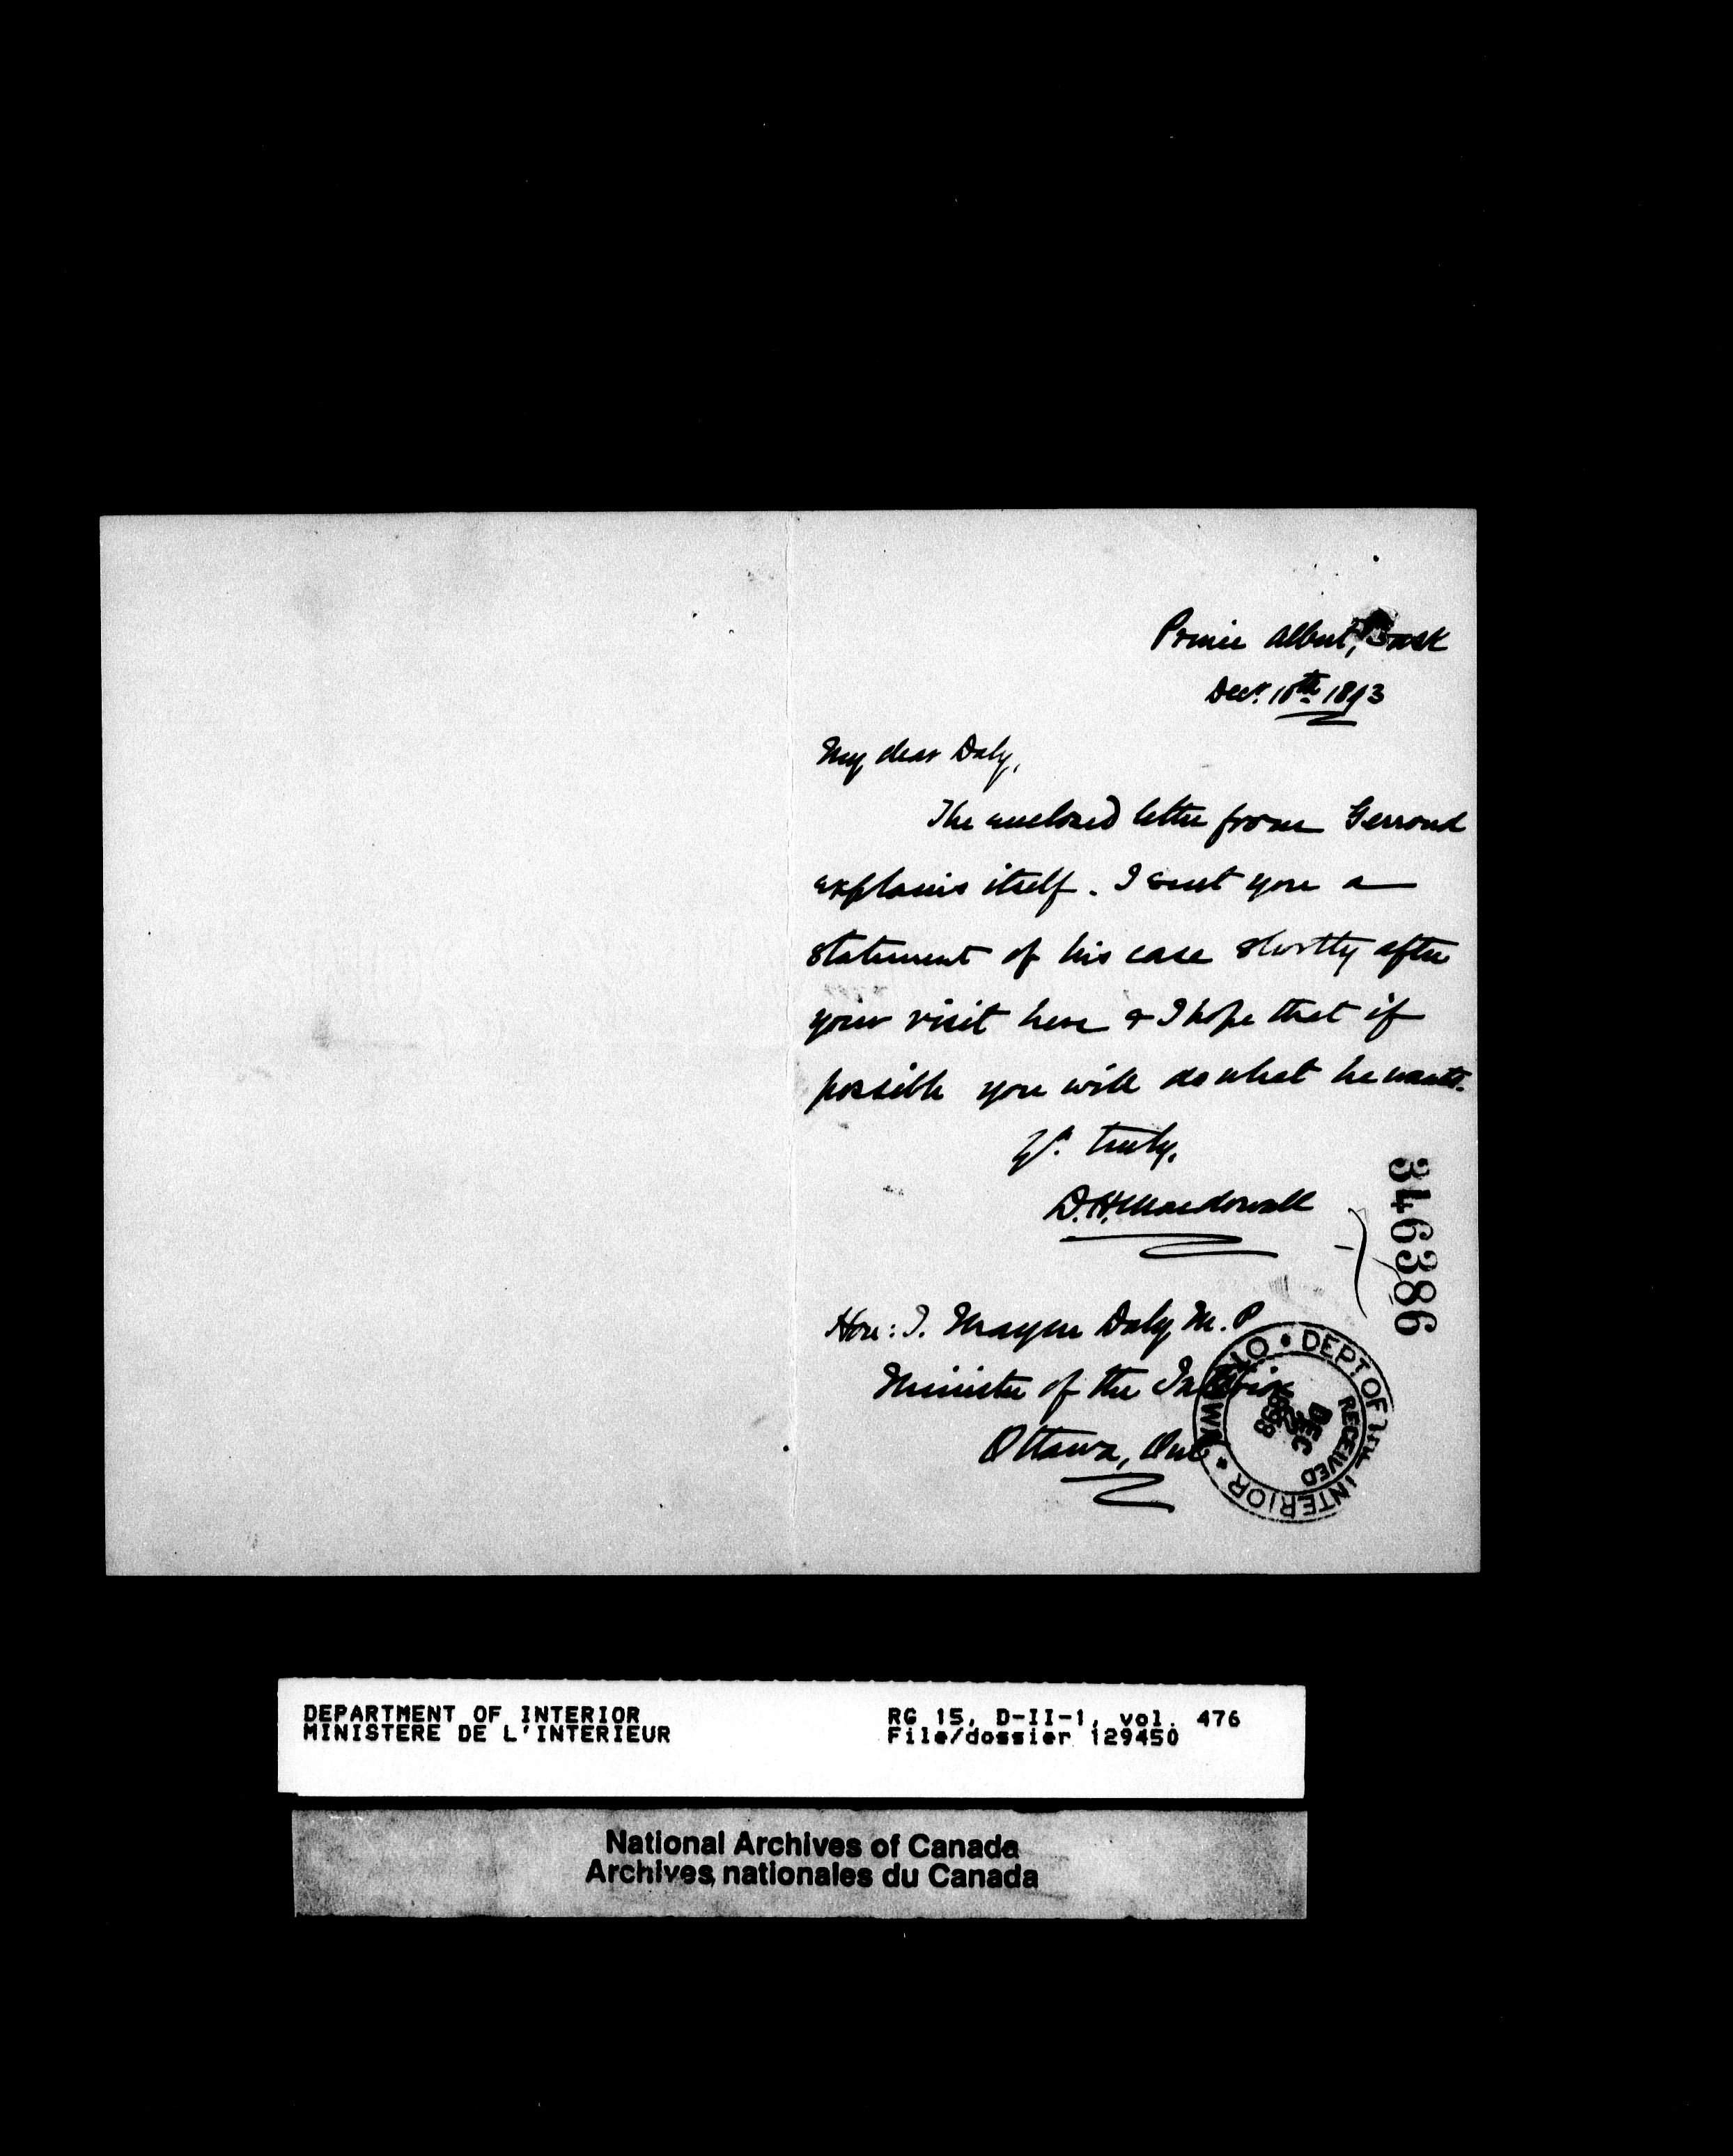 Prince Albert, Sask
Decr. 10th 1893
My dear Daly,
The enclosed letter from Gerrond
explains itself. I sent you a
statement of his case shortly after
your visit here & I hope that if
possible you will do what he wants.
Yrs. truly,
D.H. Macdowall
346386
Hon: T. Mayne Daly M.P
Minister of the Interior
Ottawa, Ont
DEPT OF THE INTERIOR • OTTAWA •
RECEIVED
DEC
DEPARTMENT OF INTERIOR RG 15, D-II-1, vol. 476
MINISTERE DE L'INTERIEUR File/dossier 129450
National Archives of Canada
Archives nationales du Canada